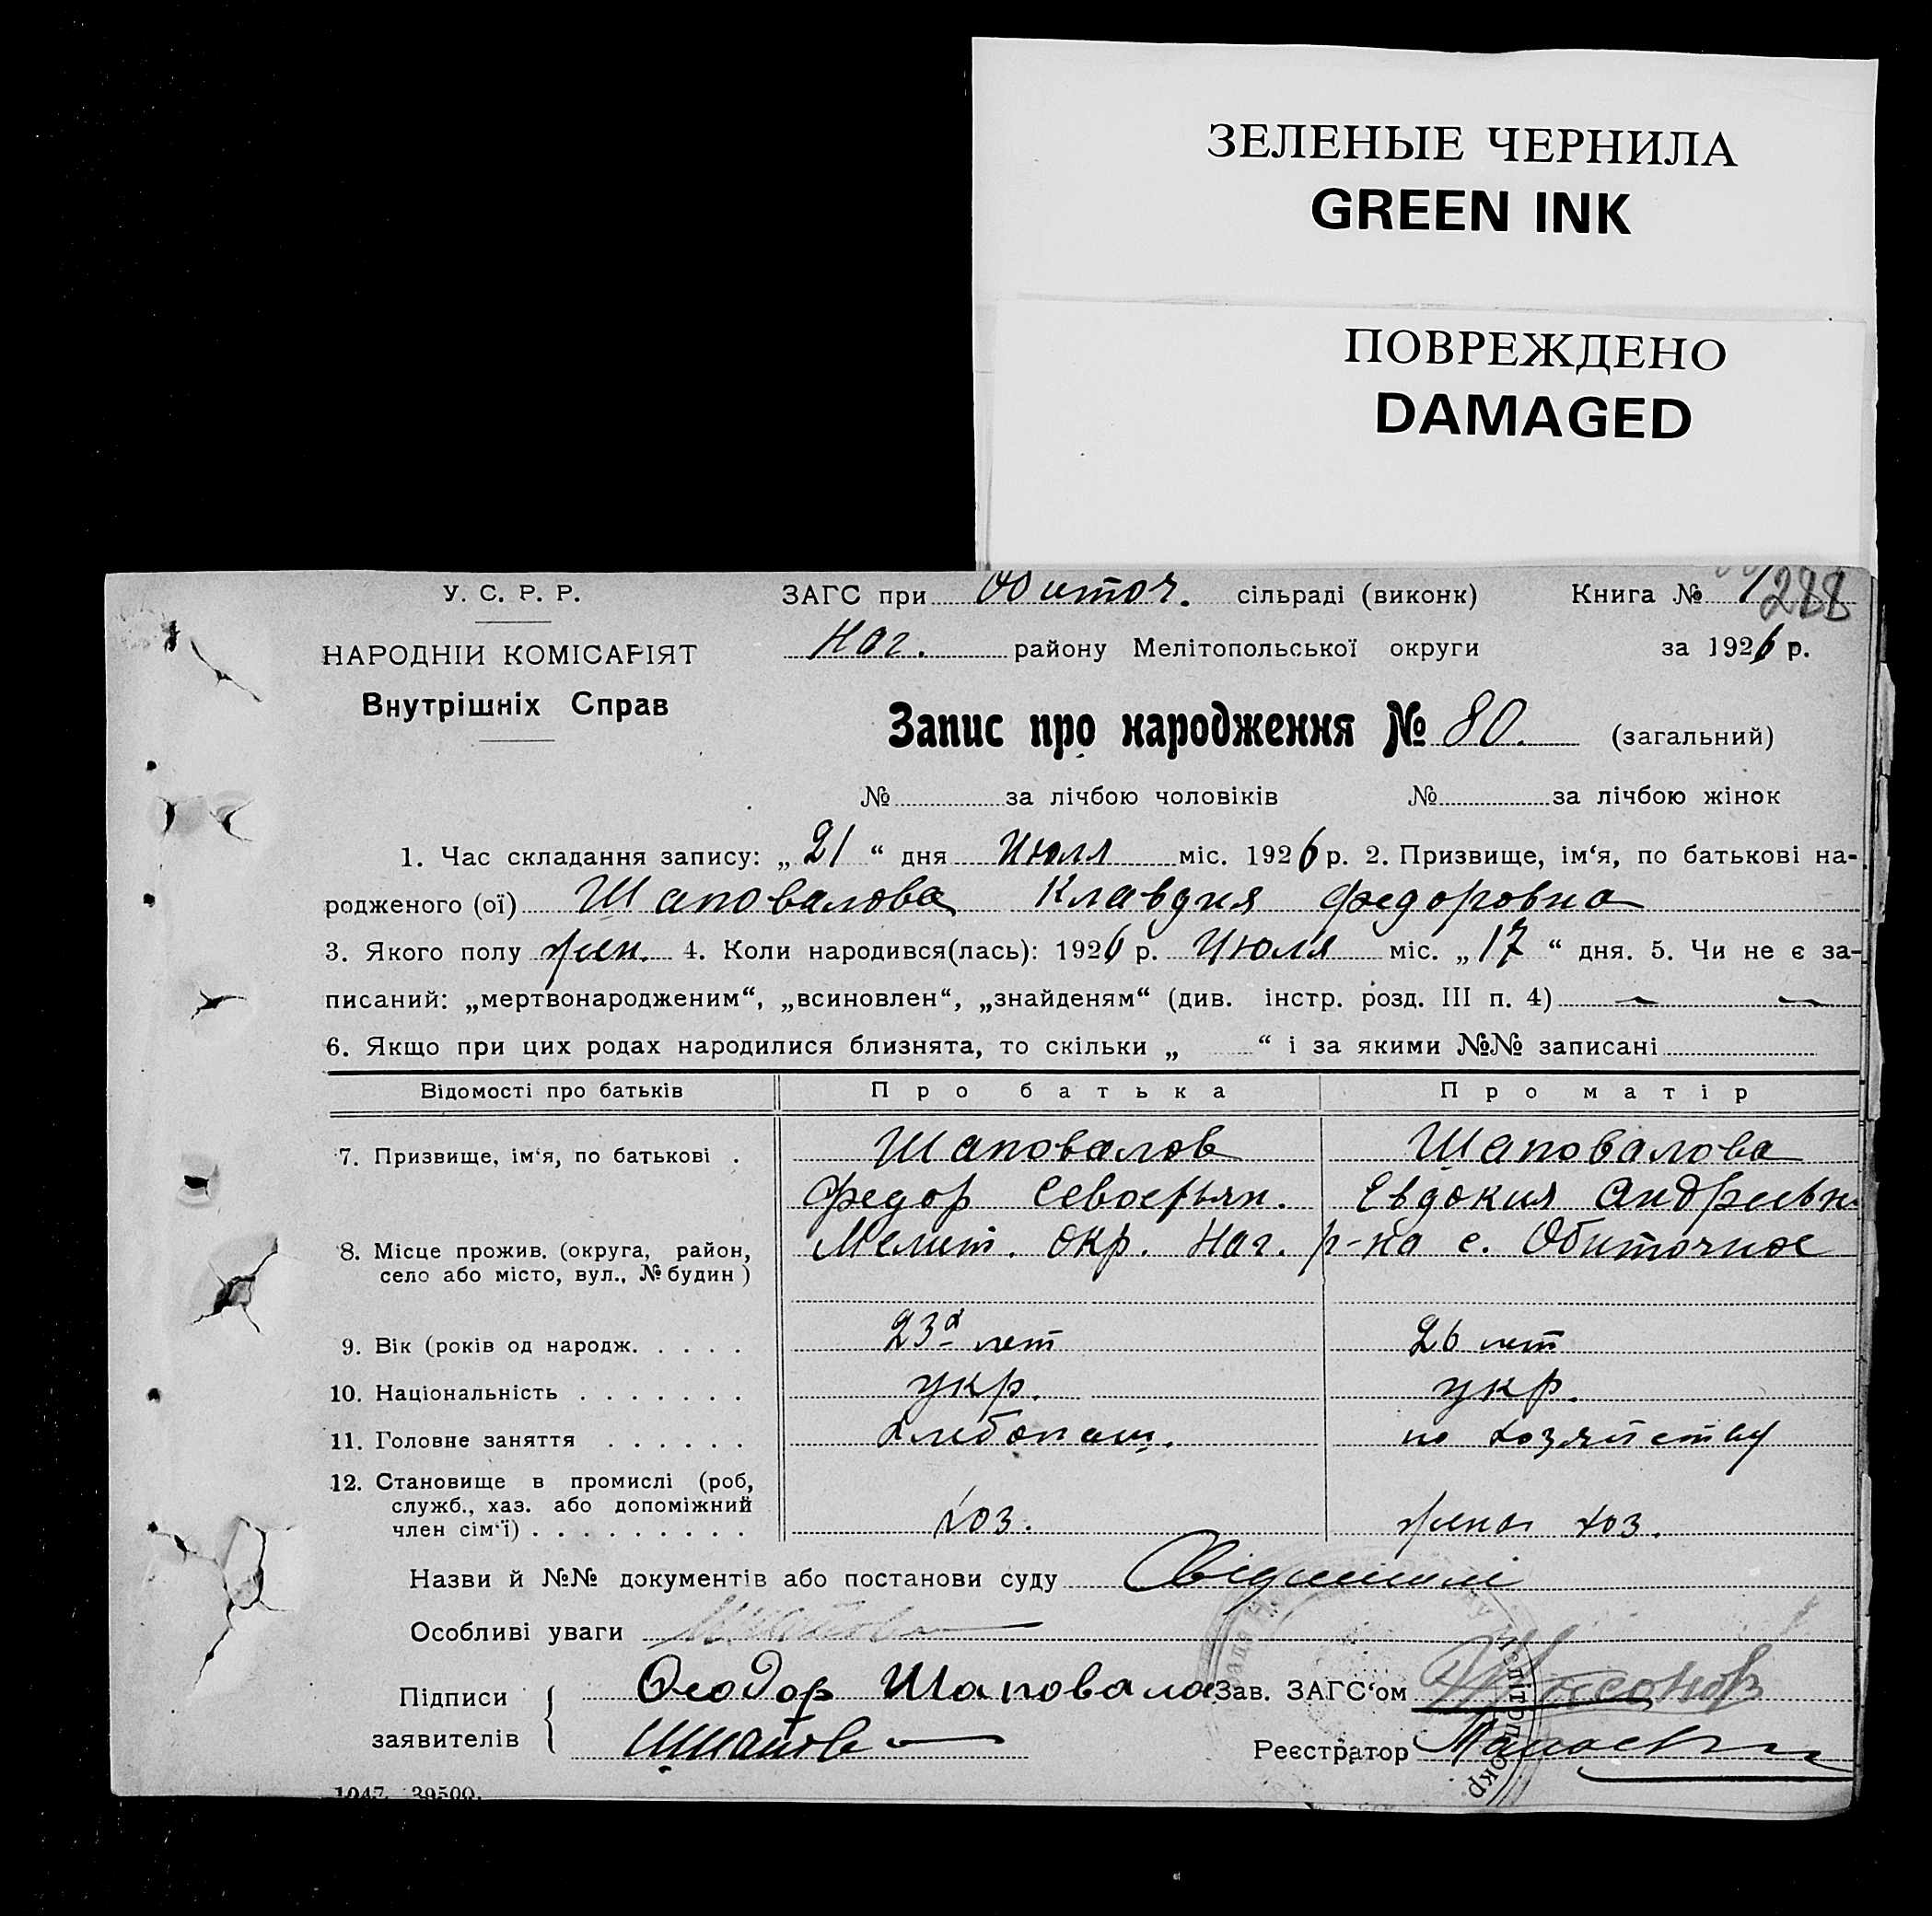 ЗЕЛЕНЫЕ ЧЕРНИЛА
GREEN INK
ПОВРЕЖДЕНО
DAMAGED
У. С. Р. Р.
ЗАГС при Обиточ. сільраді (виконк) Книга № 288
НАРОДНІЙ КОМІСАРІЯТ
Ног. району Мелітопольської округи за 1926 р.
Внутрішніх Справ
Запис про народження № 80. (загальний)
№ за лічбою чоловіків № за лічбою жінок
1. Час складання запису: „21“ дня Июля міс. 1926 р. 2. Призвище, ім‘я, по батькові на-
родженого (ої) Шаповалова Клавдия Федоровна
3. Якого полу жен. 4. Коли народився(лась): 1926 р. Июля міс. „17“ дня. 5. Чи не є за-
писаний: „мертвонародженим“, „всиновлен“, „знайденям“ (див. інстр. розд. III п. 4)
6. Якщо при цих родах народилися близнята, то скільки „ “ і за якими №№ записані
Відомості про батьків Про батька Про матір
7. Призвище, ім‘я, по батькові . Шаповалов Шаповалова
Федор Севостьян. Евдокия Андреевн.
8. Місце прожив. (округа, район, Мелит. окр. Ног. р-на с. Обиточное
село або місто, вул., № будин)
9. Вік (років од народж. . . . . 23х лет 26 лет
10. Національність . . . . . . . укр. укр.
11. Головне заняття . . . . . . хлебопаш. по хозяйству
12. Становище в промислі (роб,
служб., хаз. або допоміжний
член сім‘ї) . . . . . . . . . хоз. жена хоз.
Назви й №№ документів або постанови суду
Особливі уваги
Підписи Феодор Шаповалов Зав. ЗАГС‘ом
заявителів Реєстратор
1047 39500.